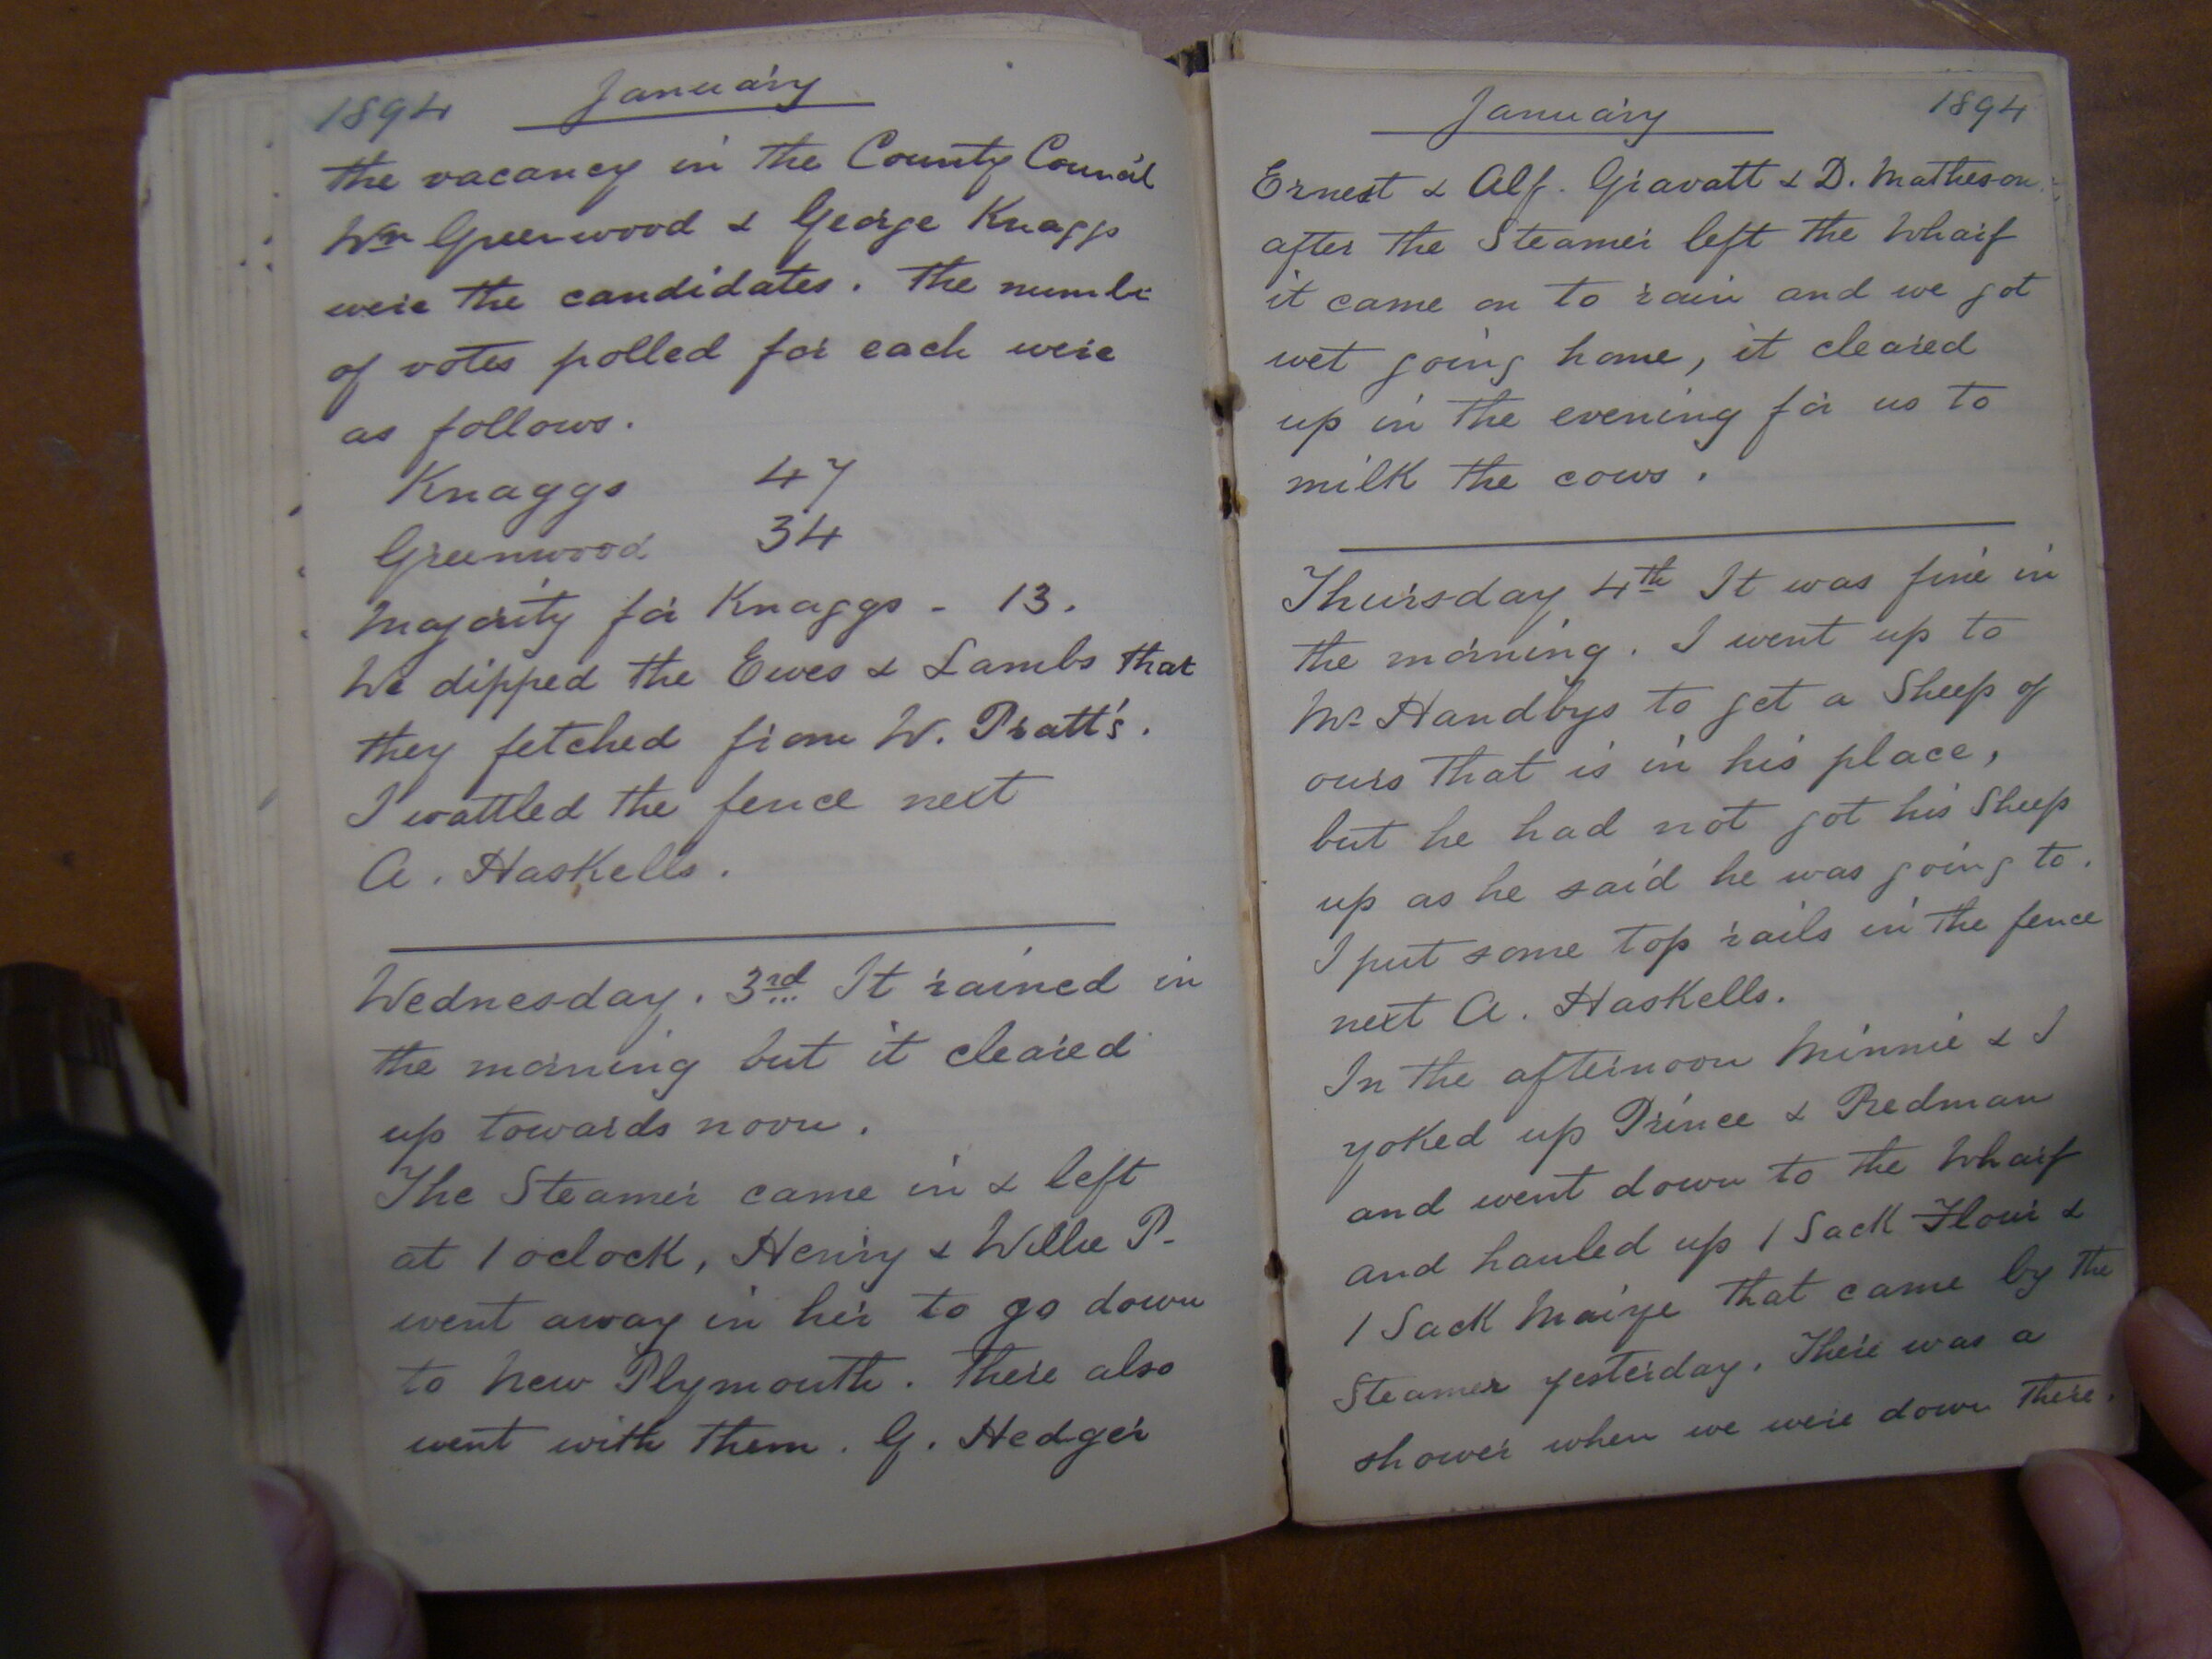 1894 January
the vacancy in the County Council
Wm Greenwood & George Knaggs
were the candidates. The numbe
of votes polled for each were
as follows.
Knaggs 47
Greenwood 34
Majority for Knaggs - 13.
We dipped the Ewes & Lambs that
they fetched from W. Pratt's.
I wattled the fence next
A. Haskells.
Wednesday. 3rd It rained in
the morning but it cleared
up towards noon.
The Steamer came in & left
at 1 oclock, Henry & Willie P.
went away in her to go down
to New Plymouth. There also
went with them. G. Hedger
January 1894
Ernest & Alf. Gravatt & D. Matheson.
after the Steamer left the Wharf
it came on to rain and we got
wet going home, it cleared
up in the evening for us to
milk the cows.
Thursday 4th It was fine in
the morning. I went up to
Mr Handbys to get a Sheep of
ours that is in his place,
but he had not got his Sheep
up as he said he was going to.
I put some top rails in the fence
next A. Haskells.
In the afternoon Minnie & I
yoked up Prince & Redman
and went down to the Wharf
and hauled up 1 Sack Flour &
1 Sack Maize that came by the
Steamer yesterday. There was a
shower when we were down there.